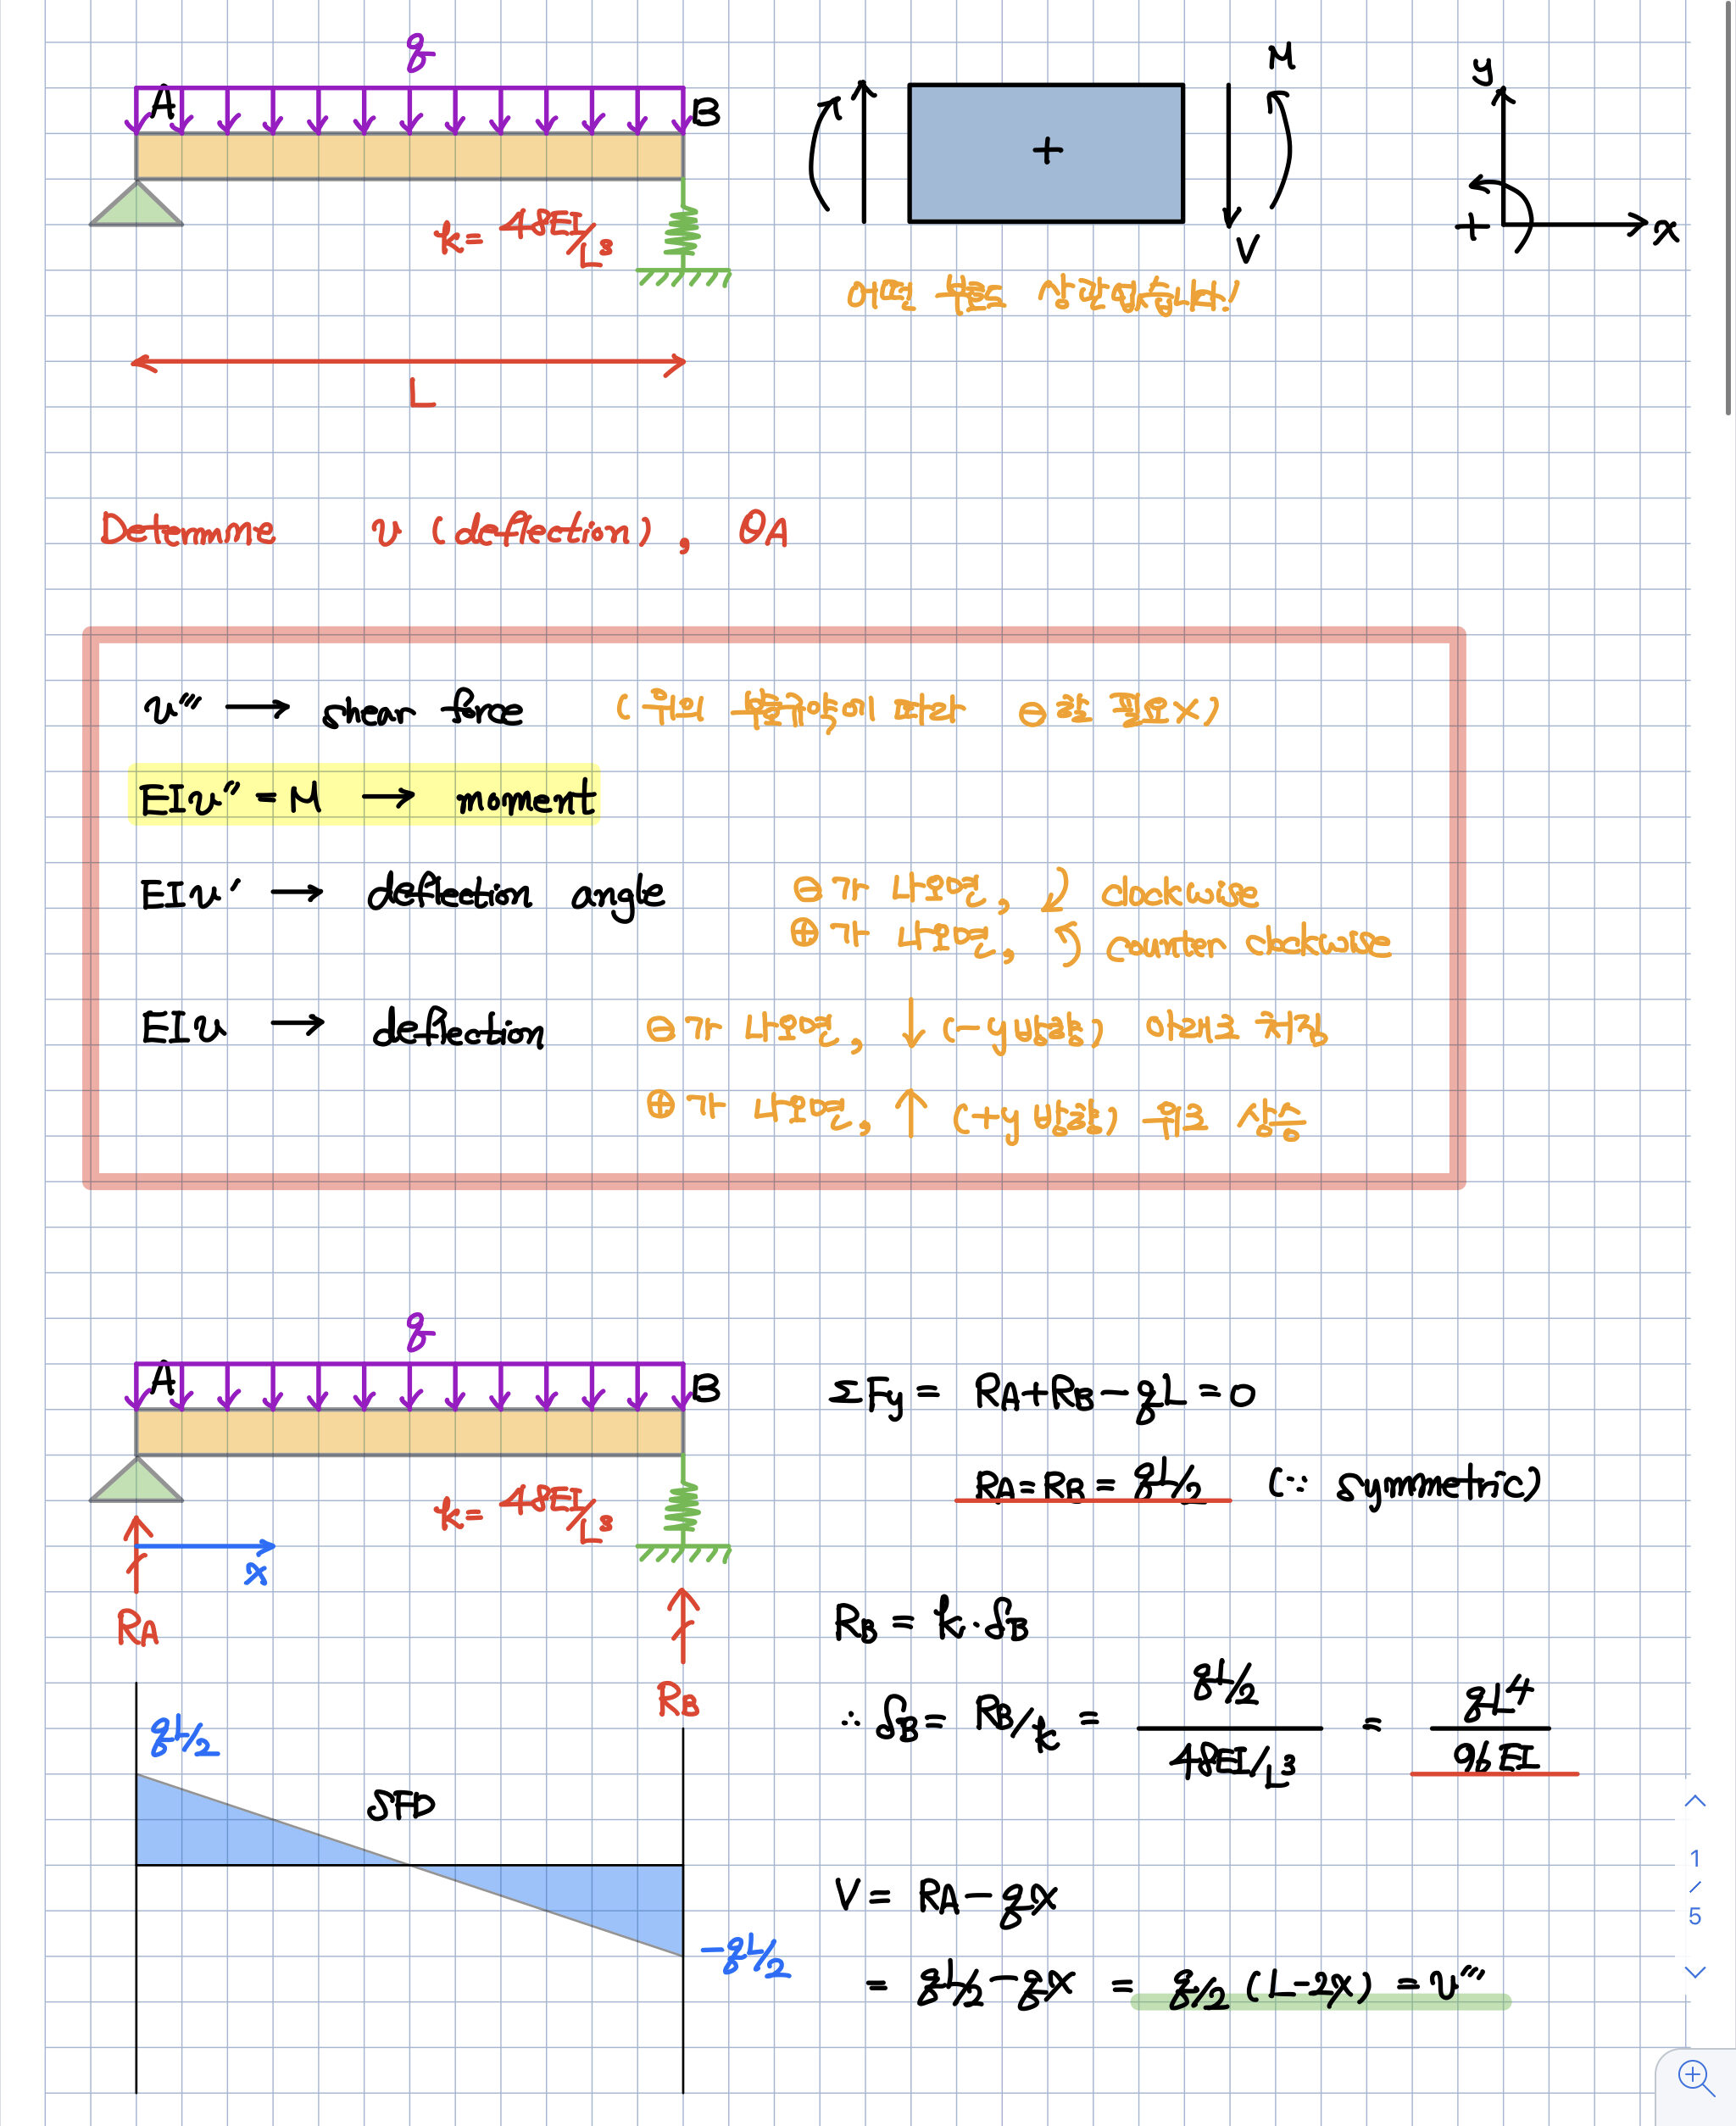 q
A
B
k = 48EI/L³
L
M
+
V
y
+
x
어떤 부호도 상관없습니다!
Determine v (deflection), θA
v''' → shear force (위의 부호규약에 따라 ⊖할 필요X)
EIv'' = M → moment
EIv' → deflection angle ⊖가 나오면, clockwise
⊕가 나오면, counter clockwise
EIv → deflection ⊖가 나오면, ↓ (-y방향) 아래로 처짐
⊕가 나오면, ↑ (+y방향) 위로 상승
q
A
B
k = 48EI/L³
x
RA
RB
ΣFy = RA+RB-qL = 0
RA = RB = qL/2 (∵ symmetric)
RB = k·δB
∴ δB = RB/k = (qL/2)/(48EI/L³) = qL⁴/96EI
qL/2
SFD
-qL/2
V = RA-qx
= qL/2-qx = q/2 (L-2x) = v'''
1
/
5